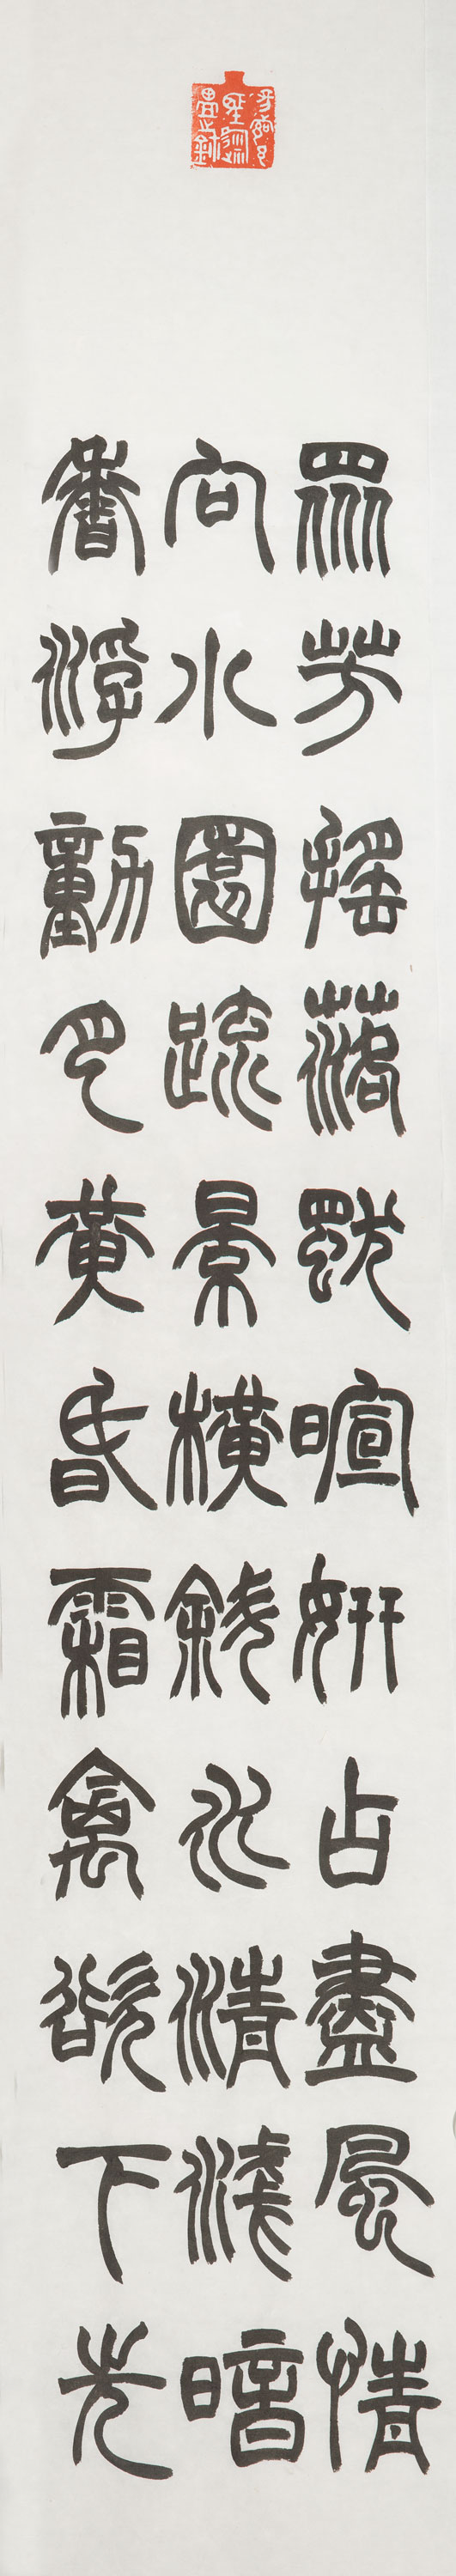 眾芳搖落獨暄妍占盡風情
向小園疏景橫斜水清淺暗
香浮動月黃昏霜禽欲下先